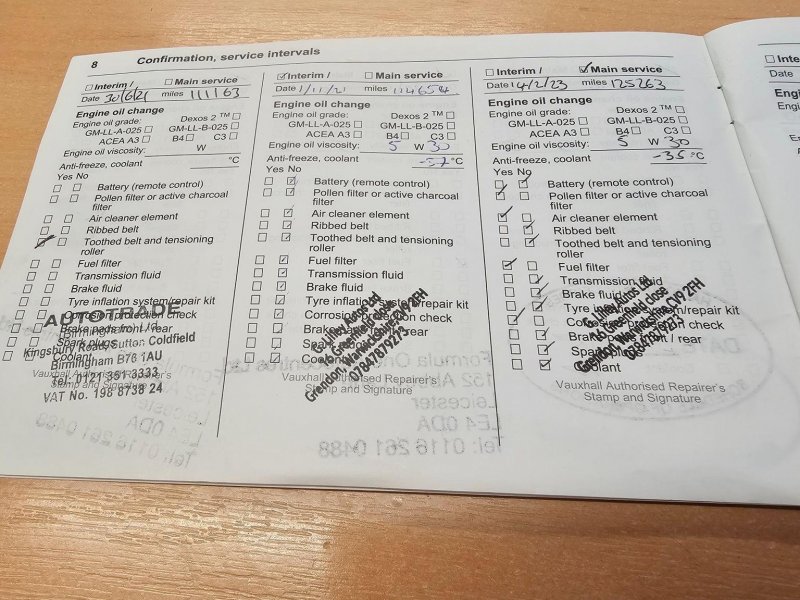 8 Confirmation, service intervals
Interim / Main service
Date 30/6/21 miles 111163
Engine oil change
Engine oil grade: Dexos 2 ™
GM-LL-A-025 GM-LL-B-025
ACEA A3 B4 C3
Engine oil viscosity: W
Anti-freeze, coolant °C
Yes No
Battery (remote control)
Pollen filter or active charcoal
filter
Air cleaner element
Ribbed belt
Toothed belt and tensioning
roller
Fuel filter
Transmission fluid
Brake fluid
Tyre inflation system/repair kit
Corrosion protection check
Brake pads front / rear
Spark plugs
Coolant
Vauxhall Authorised Repairer's
Stamp and Signature
AUTOTRADE
Birmingham Ltd
Kingsbury Road, Sutton Coldfield
Birmingham B76 1AU
Tel: 0121 351 3333
VAT No. 198 8738 24
Interim / Main service
Date 1/11/21 miles
Engine oil change
Engine oil grade: Dexos 2 ™
GM-LL-A-025 GM-LL-B-025
ACEA A3 B4 C3
Engine oil viscosity: 5 W 30
Anti-freeze, coolant °C
Yes No
Battery (remote control)
Pollen filter or active charcoal
filter
Air cleaner element
Ribbed belt
Toothed belt and tensioning
roller
Fuel filter
Transmission fluid
Brake fluid
Tyre inflation system/repair kit
Corrosion protection check
Brake pads front / rear
Spark plugs
Coolant
Vauxhall Authorised Repairer's
Stamp and Signature
Grendon, Warwickshire CV9 2FH
07847879273
Interim / Main service
Date 14/2/23 miles 125263
Engine oil change
Engine oil grade: Dexos 2 ™
GM-LL-A-025 GM-LL-B-025
ACEA A3 B4 C3
Engine oil viscosity: 5 W 30
Anti-freeze, coolant -35 °C
Yes No
Battery (remote control)
Pollen filter or active charcoal
filter
Air cleaner element
Ribbed belt
Toothed belt and tensioning
roller
Fuel filter
Transmission fluid
Brake fluid
Tyre inflation system/repair kit
Corrosion protection check
Brake pads front / rear
Spark plugs
Coolant
Vauxhall Authorised Repairer's
Stamp and Signature